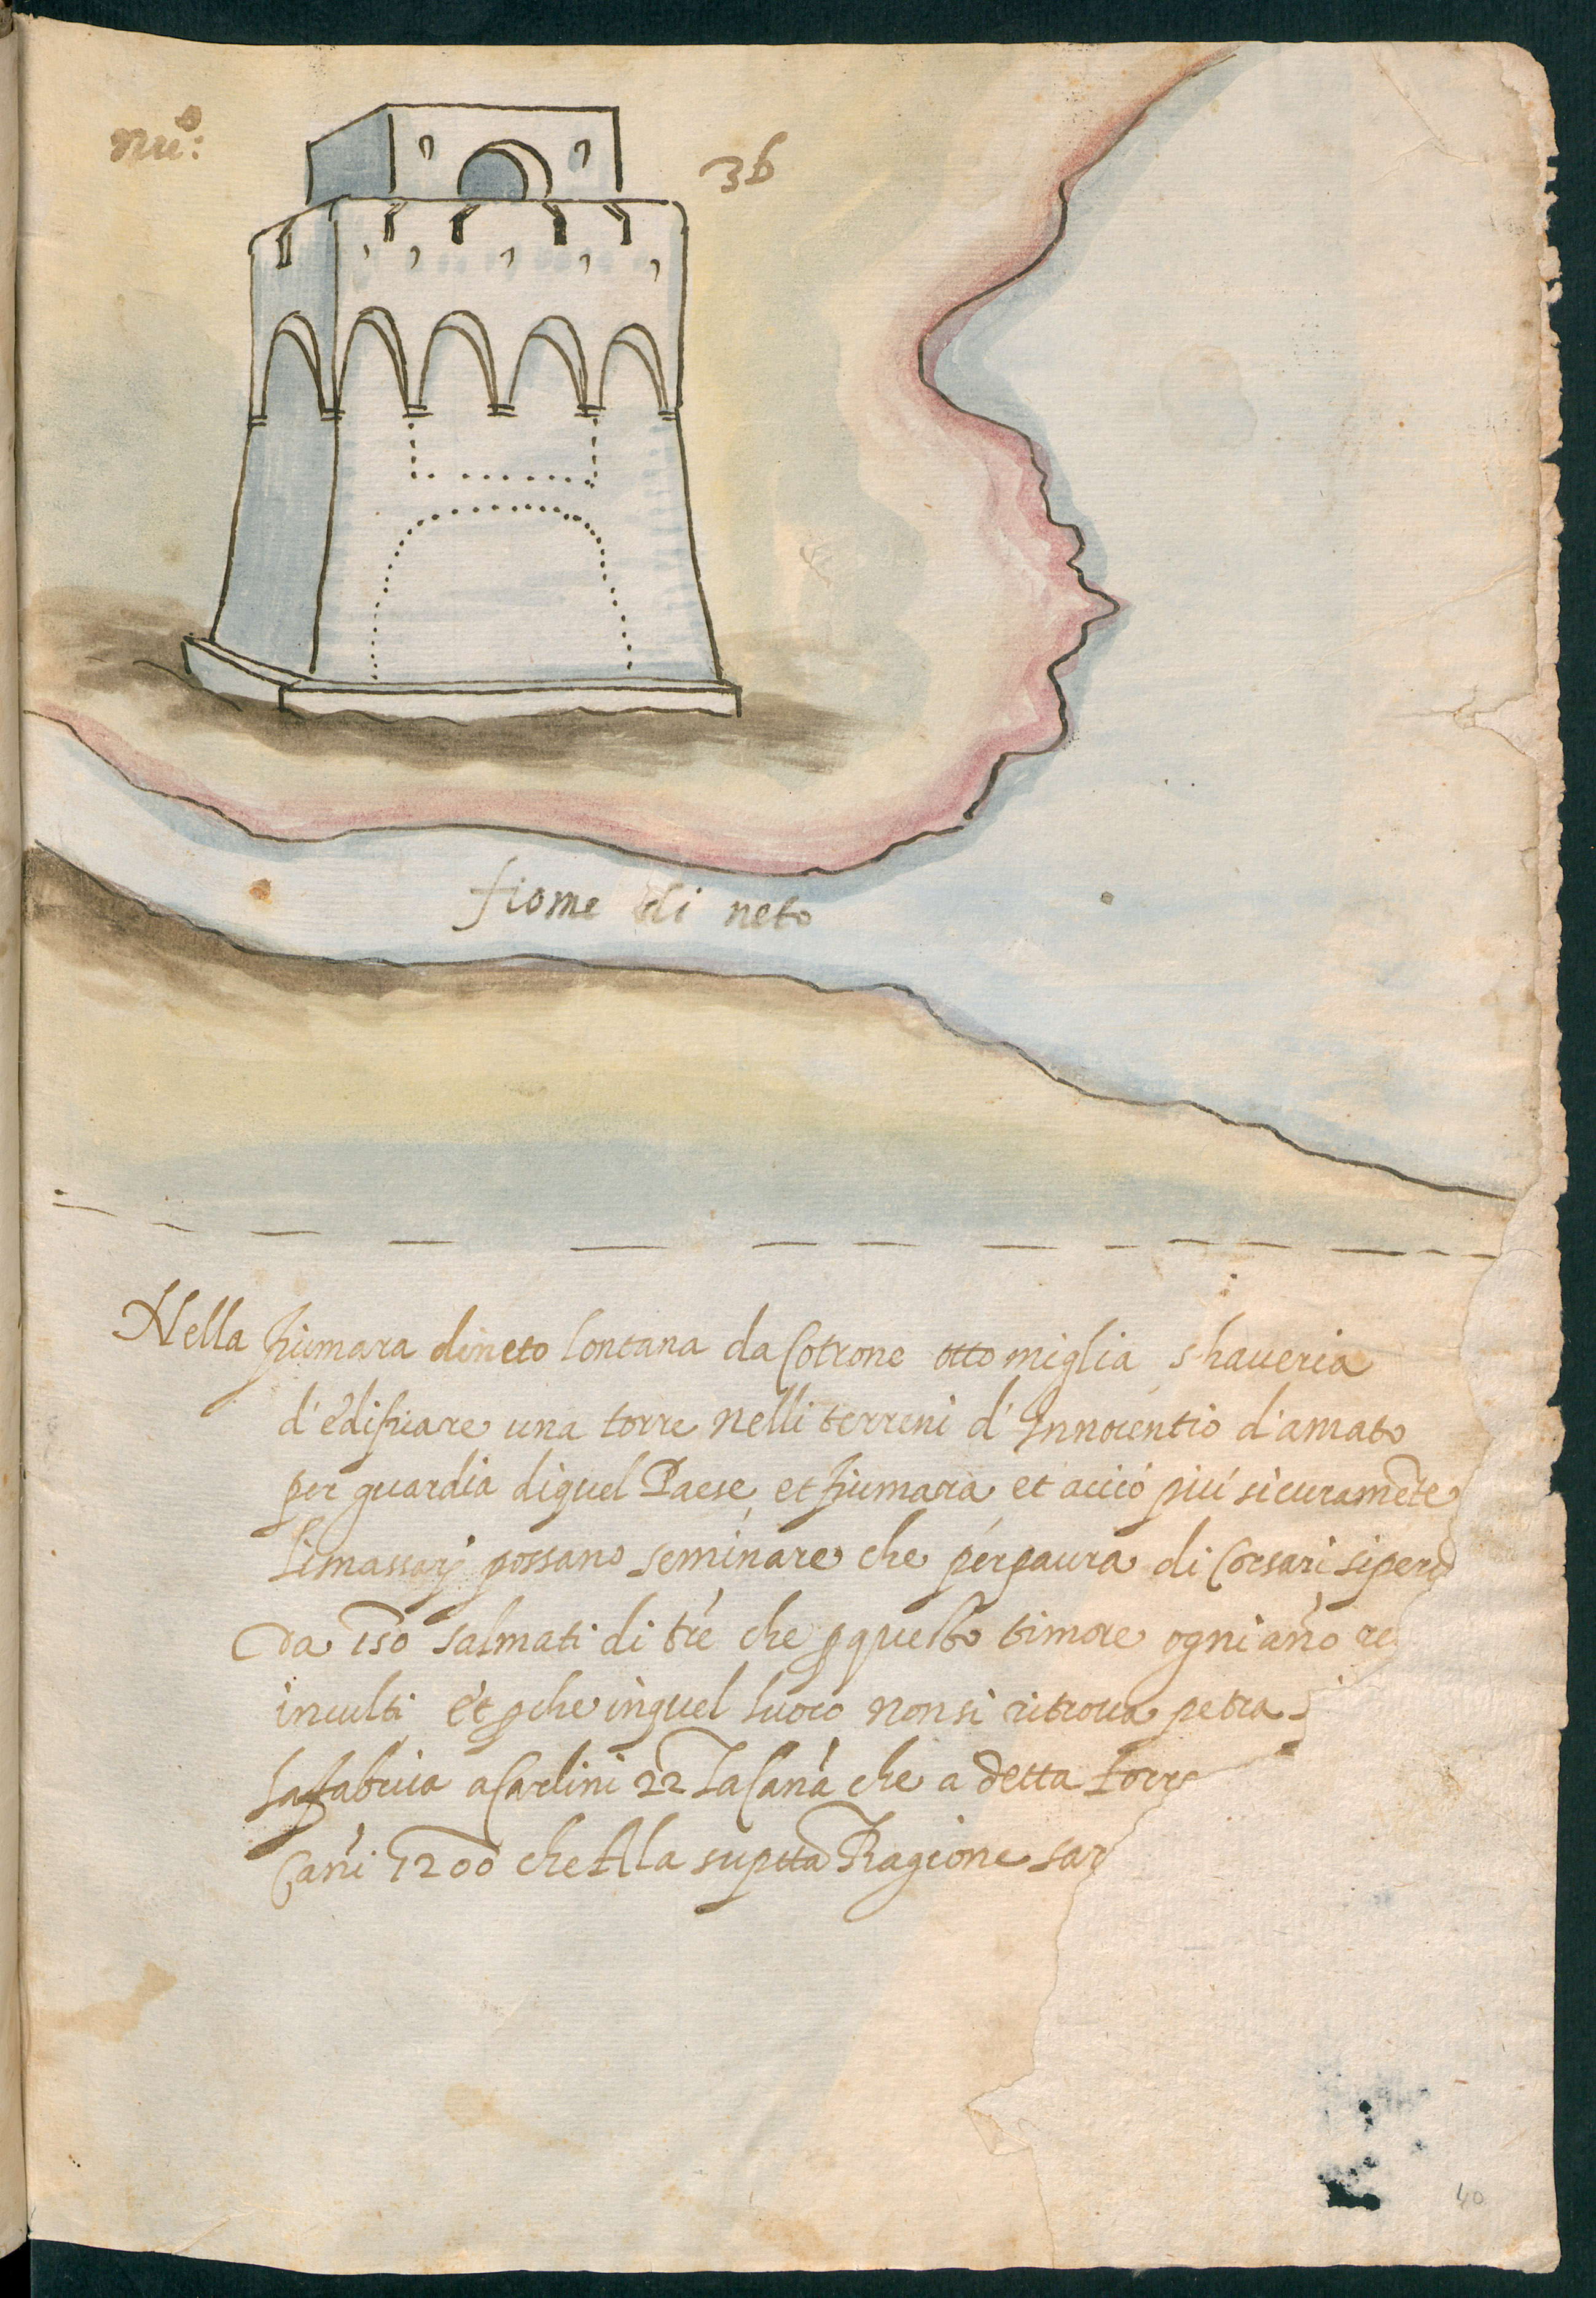 nu.o: 36
fiome di neto
Nella fiumara dineto lontana da Cotrone otto miglia s'haueria
d'edificare una torre nelli terreni d'Innocentio d'amato
per guardia diquel Paese et fiumara et acciò più sicuramẽte
li massarj possano seminare che per paura di Corsari si perd
da 150 salmati di trẽ che ꝑ questo timore ogni año re
inculti et ꝑche inquel luoco non si ritroua petra
la fabrica a Carlini 22 la Canà che a detta torre
Cañi 1200 che Alla suptta Ragione sar
40